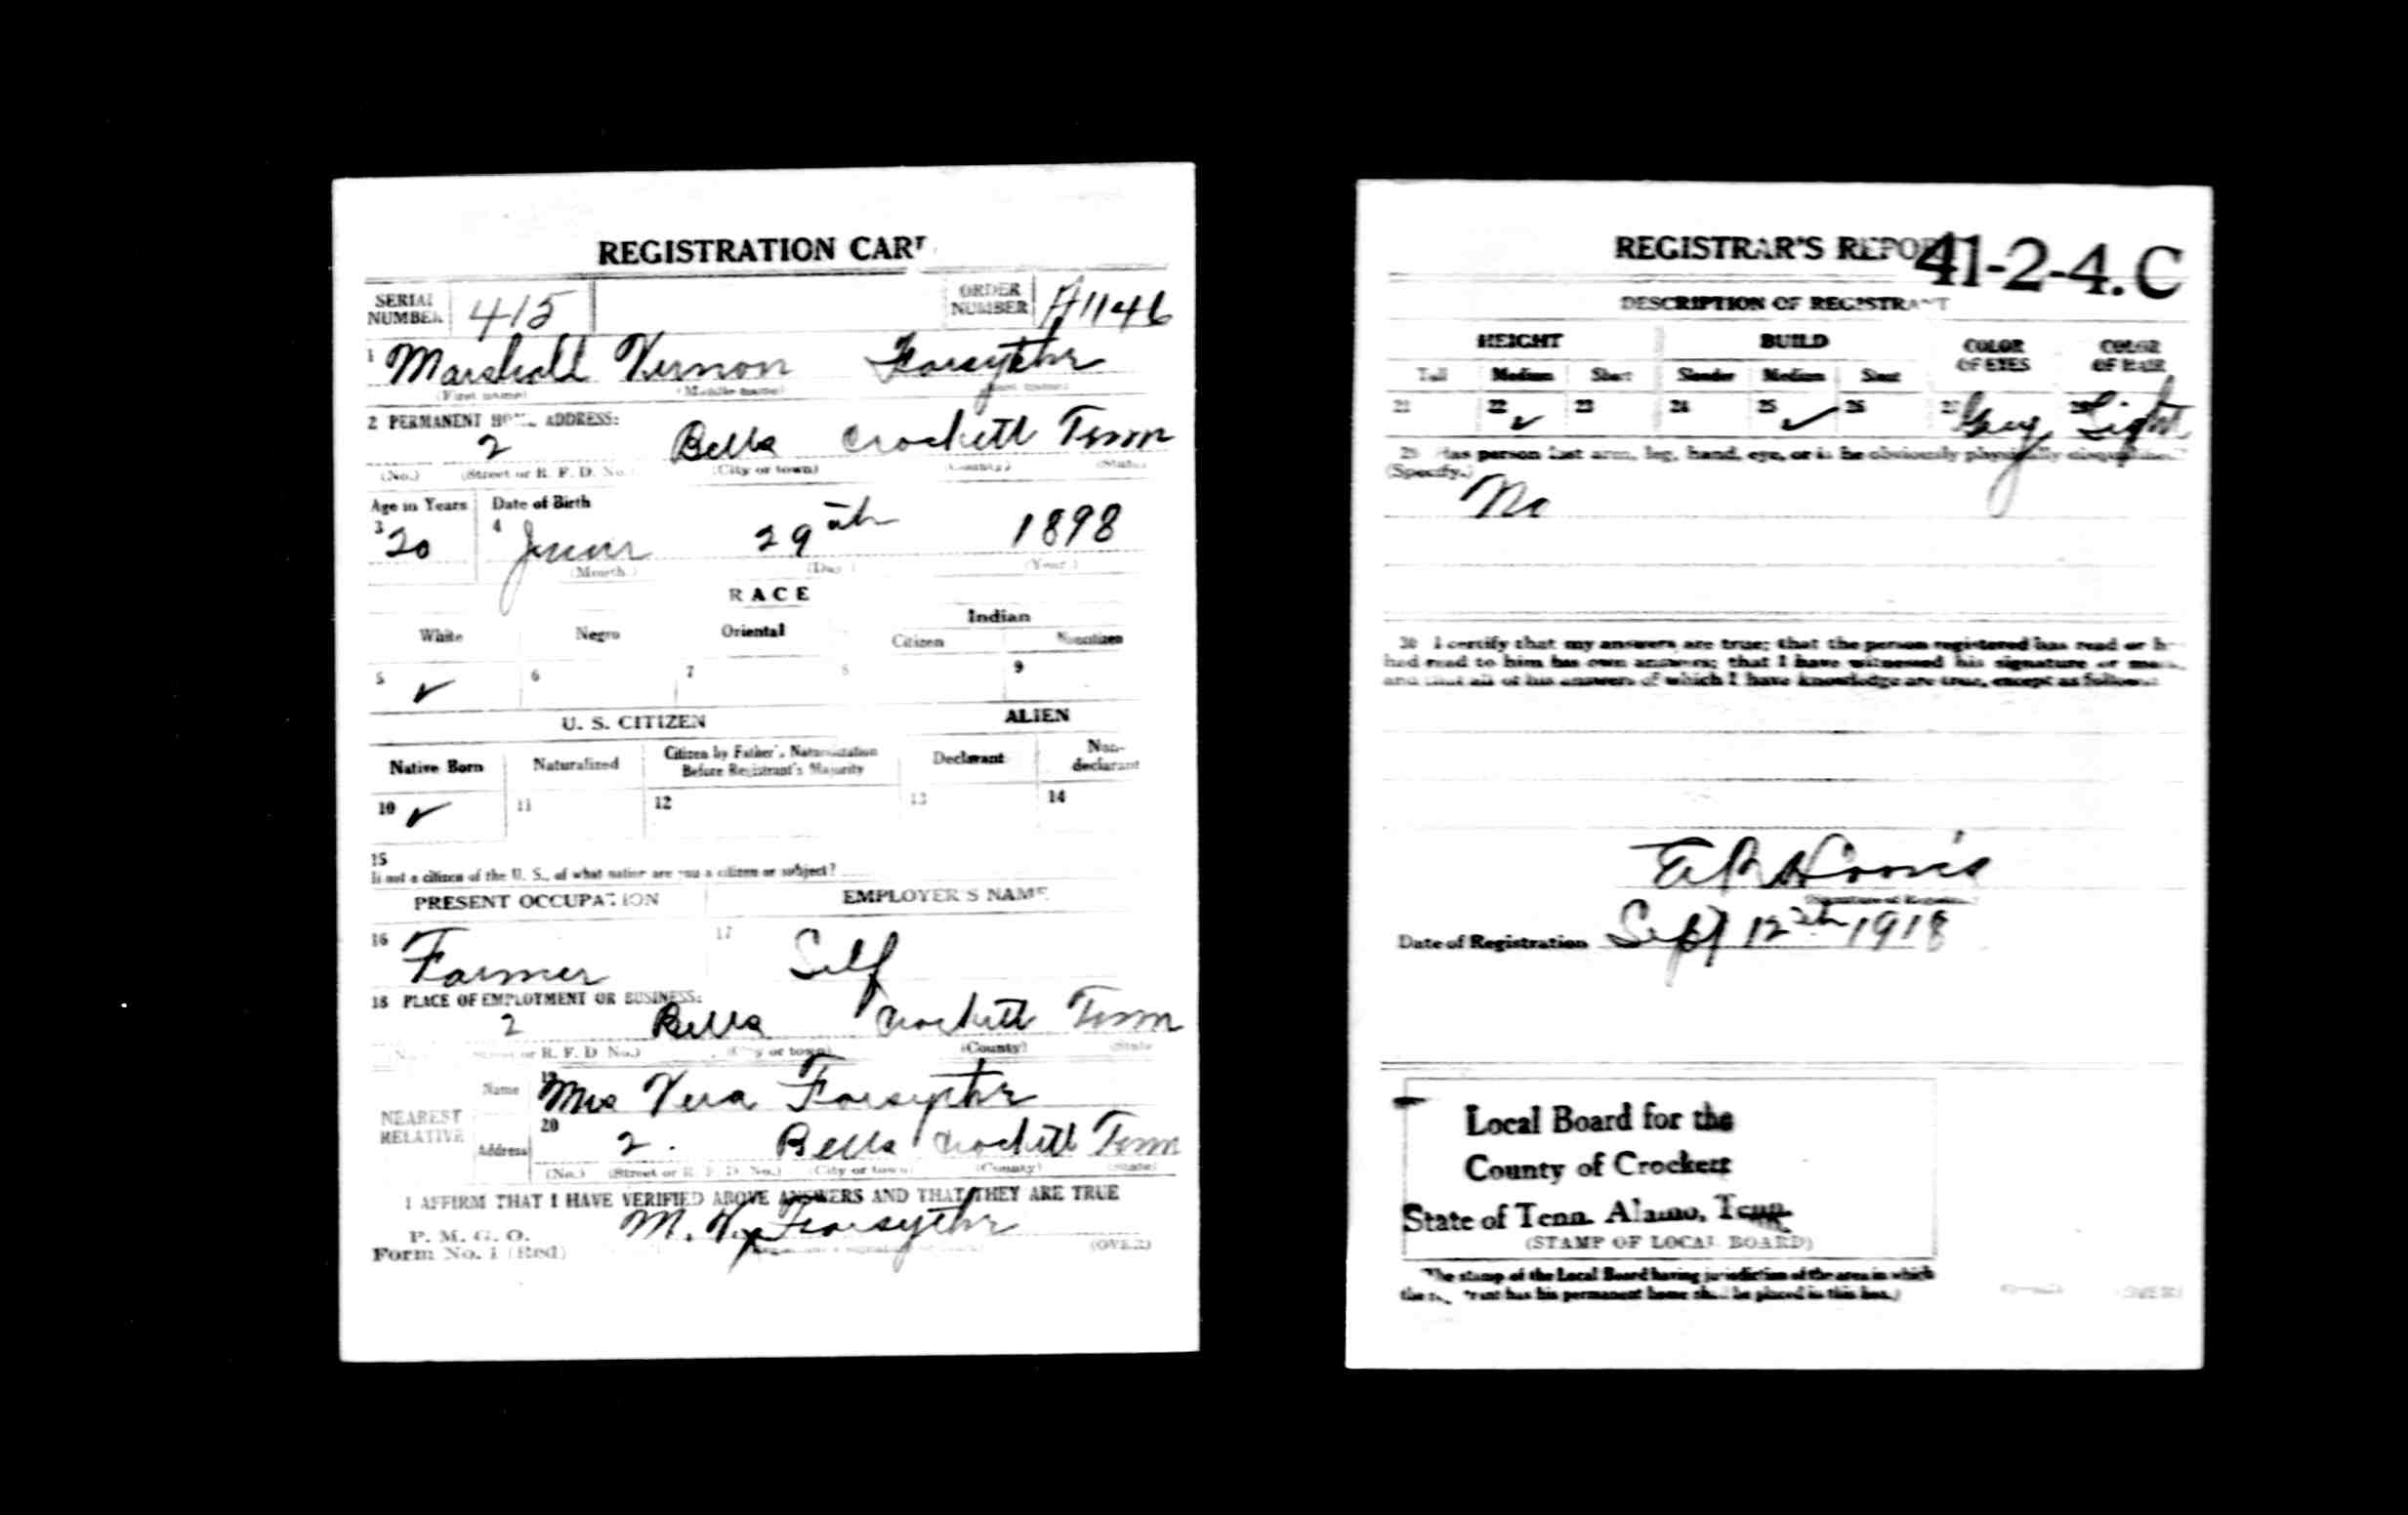 REGISTRATION CARD
SERIAL NUMBER 415 ORDER NUMBER A1146
1 Marshall Vernon Forsythe
(First name) (Middle name) (Last name)
2 PERMANENT HOME ADDRESS:
2 Bells Crockett Tenn
(No.) (Street or R. F. D. No.) (City or town) (County) (State)
Age in Years Date of Birth
3 20 4 June 29th 1898
(Month.) (Day.) (Year.)
RACE
White Negro Oriental Indian
Citizen Noncitizen
5 ✓ 6 7 8 9
U. S. CITIZEN ALIEN
Native Born Naturalized Citizen by Father's Naturalization Before Registrant's Majority Declarant Non-declarant
10 ✓ 11 12 13 14
15
If not a citizen of the U. S., of what nation are you a citizen or subject?
PRESENT OCCUPATION EMPLOYER'S NAME
16 Farmer 17 Self
18 PLACE OF EMPLOYMENT OR BUSINESS:
2 Bells Crockett Tenn
(No.) (Street or R. F. D. No.) (City or town) (County) (State)
NEAREST RELATIVE
Name 19 Mrs Vera Forsythe
Address 20 2. Bells Crockett Tenn
(No.) (Street or R. F. D. No.) (City or town) (County) (State)
I AFFIRM THAT I HAVE VERIFIED ABOVE ANSWERS AND THAT THEY ARE TRUE
P. M. G. O.
Form No. 1 (Red) M. V. Forsythe (OVER)
REGISTRAR'S REPORT 41-2-4.C
DESCRIPTION OF REGISTRANT
HEIGHT BUILD COLOR OF EYES COLOR OF HAIR
Tall Medium Short Slender Medium Stout
21 22 ✓ 23 24 25 ✓ 26 27 Grey 28 Light
29 Has person lost arm, leg, hand, eye, or is he obviously physically disqualified?
(Specify.) No
30 I certify that my answers are true; that the person registered has read or has
had read to him his own answers; that I have witnessed his signature or mark,
and that all of his answers of which I have knowledge are true, except as follows:
(Signature of Registrar)
Date of Registration Sept 12th 1918
Local Board for the
County of Crockett
State of Tenn. Alamo, Tenn.
(STAMP OF LOCAL BOARD)
(The stamp of the Local Board having jurisdiction of the area in which
the registrant has his permanent home shall be placed in this box.)
(OVER)